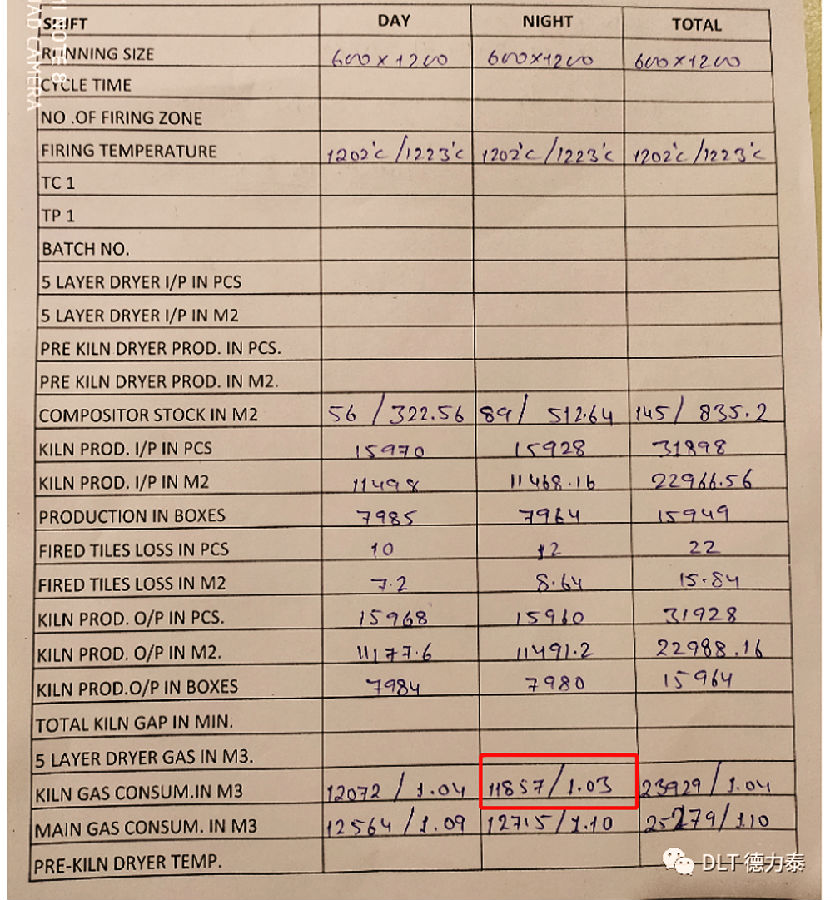 SHIFT DAY NIGHT TOTAL
RUNNING SIZE 600x1200 600x1200 600x1200
CYCLE TIME
NO .OF FIRING ZONE
FIRING TEMPERATURE 1202°c/1223°c 1202°c/1223°c 1202°c/1223°c
TC 1
TP 1
BATCH NO.
5 LAYER DRYER I/P IN PCS
5 LAYER DRYER I/P IN M2
PRE KILN DRYER PROD. IN PCS.
PRE KILN DRYER PROD. IN M2.
COMPOSITOR STOCK IN M2 56 / 322.56 89/ 512.64 145/ 835.2
KILN PROD. I/P IN PCS 15970 15928 31898
KILN PROD. I/P IN M2 11498 11468.16 22966.56
PRODUCTION IN BOXES 7985 7964 15949
FIRED TILES LOSS IN PCS 10 12 22
FIRED TILES LOSS IN M2 7.2 8.64 15.84
KILN PROD. O/P IN PCS. 15968 15960 31928
KILN PROD. O/P IN M2. 11177.6 11491.2 22988.16
KILN PROD.O/P IN BOXES 7984 7980 15964
TOTAL KILN GAP IN MIN.
5 LAYER DRYER GAS IN M3.
KILN GAS CONSUM.IN M3 12072 / 1.04 11857/1.03 23929/1.04
MAIN GAS CONSUM. IN M3 12564/1.09 12715/1.10 25279/1.10
PRE-KILN DRYER TEMP.
DLT德力泰